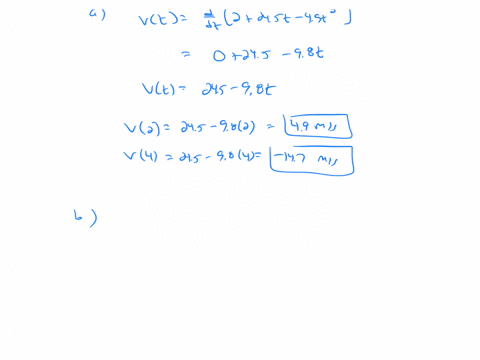 a) V(t) = d/dt (2 + 24.5t - 4.9t² )
= 0 + 24.5 - 9.8t
V(t) = 24.5 - 9.8t
V(2) = 24.5 - 9.8(2) = 4.9 m/s
V(4) = 24.5 - 9.8(4) = -14.7 m/s
b)